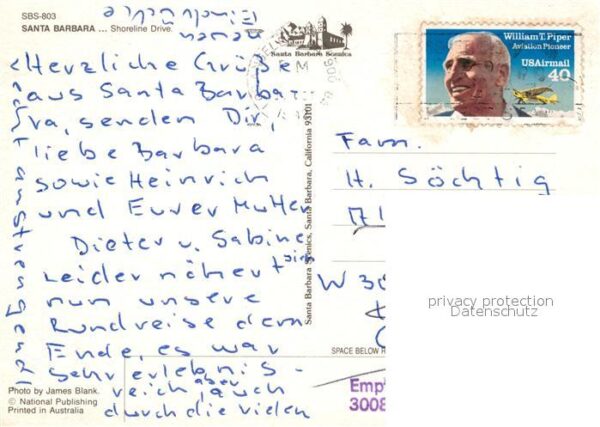 SBS-803
SANTA BARBARA ... Shoreline Drive.
Santa Barbara Scenics
Herzliche Grüße
aus Santa Barba-
ra, senden Dir,
liebe Barbara
sowie Heinrich
und Eurer Mutter
Dieter u. Sabine
Leider nähert sich
nun unsere
Rundreise dem
Ende, es war
sehr erlebnis-
reich, aber auch
durch die vielen
neuen
Eindrücke
Photo by James Blank.
© National Publishing
Printed in Australia
Santa Barbara Scenics, Santa Barbara, California 93101
William T. Piper
Aviation Pioneer
USAirmail
40
Fam.
H. Söchtig
W 30
SPACE BELOW R
Emp
3008
privacy protection
Datenschutz